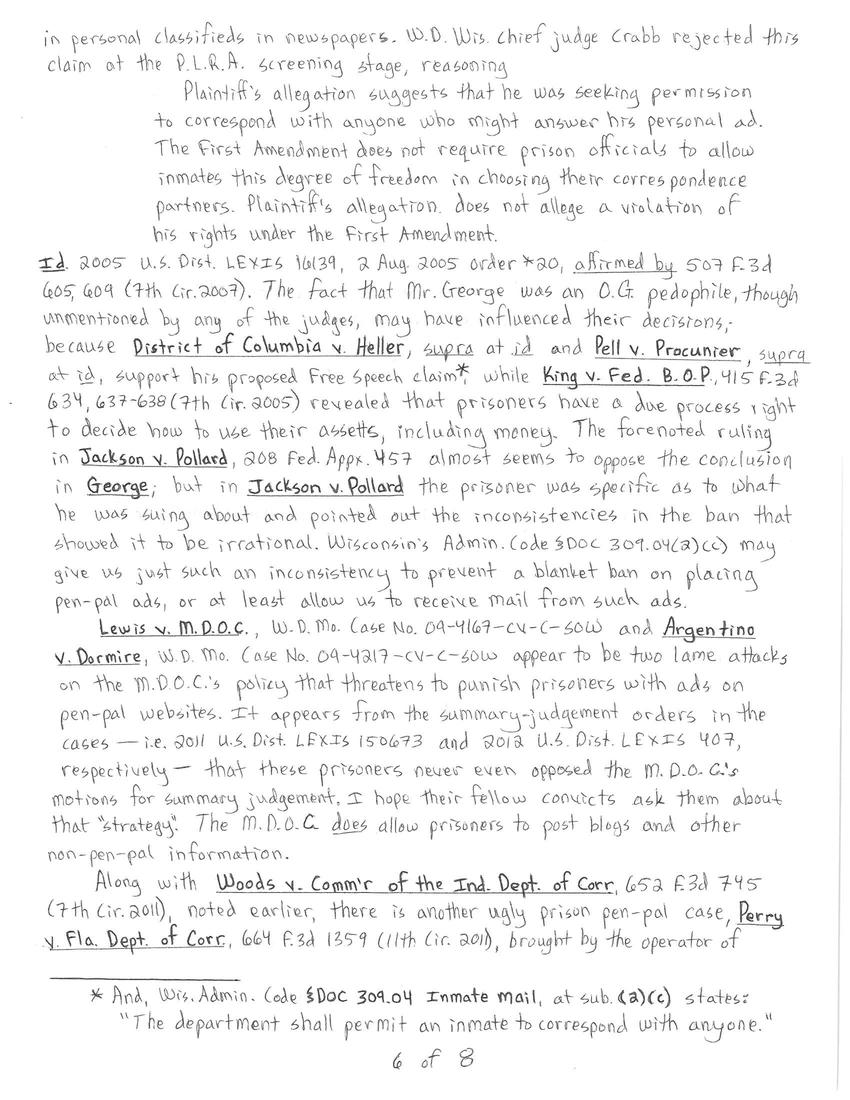 in personal classifieds in newspapers. W.D. Wis. Chief judge Crabb rejected this
claim at the P.L.R.A. screening stage, reasoning
Plaintiff's allegation suggests that he was seeking permission
to correspond with anyone who might answer his personal ad.
The First Amendment does not require prison officials to allow
inmates this degree of freedom in choosing their correspondence
partners. Plaintiff's allegation does not allege a violation of
his rights under the First Amendment.
Id. 2005 U.S. Dist. LEXIS 16139, 2 Aug. 2005 order *20, affirmed by 507 F.3d
605, 609 (7th Cir. 2007). The fact that Mr. George was an O.G. pedophile, though
unmentioned by any of the judges, may have influenced their decisions,-
because District of Columbia v. Heller, supra at id and Pell v. Procunier, supra
at id, support his proposed Free Speech claim*, while King v. Fed. B.O.P., 415 F.3d
634, 637-638 (7th Cir. 2005) revealed that prisoners have a due process right
to decide how to use their assetts, including money. The forenoted ruling
in Jackson v. Pollard, 208 Fed. Appx. 457 almost seems to oppose the conclusion
in George; but in Jackson v. Pollard the prisoner was specific as to what
he was suing about and pointed out the inconsistencies in the ban that
showed it to be irrational. Wisconsin's Admin. Code §DOC 309.04(2)(c) may
give us just such an inconsistency to prevent a blanket ban on placing
pen-pal ads, or at least allow us to receive mail from such ads.
Lewis v. M.D.O.C., W.D. Mo. Case No. 09-4167-CV-C-SOW and Argentino
v. Dormire, W.D. Mo. Case No. 09-4217-CV-C-SOW appear to be two lame attacks
on the M.D.O.C.'s policy that threatens to punish prisoners with ads on
pen-pal websites. It appears from the summary-judgement orders in the
cases — i.e. 2011 U.S. Dist. LEXIS 150673 and 2012 U.S. Dist. LEXIS 407,
respectively — that these prisoners never even opposed the M.D.O.C.'s
motions for summary judgement. I hope their fellow convicts ask them about
that "strategy". The M.D.O.C. does allow prisoners to post blogs and other
non-pen-pal information.
Along with Woods v. Comm'r of the Ind. Dept. of Corr., 652 F.3d 745
(7th Cir. 2011), noted earlier, there is another ugly prison pen-pal case, Perry
v. Fla. Dept. of Corr., 664 F.3d 1359 (11th Cir. 2011), brought by the operator of
* And, Wis. Admin. Code §DOC 309.04 Inmate Mail, at sub. (2)(c) states:
"The department shall permit an inmate to correspond with anyone."
6 of 8